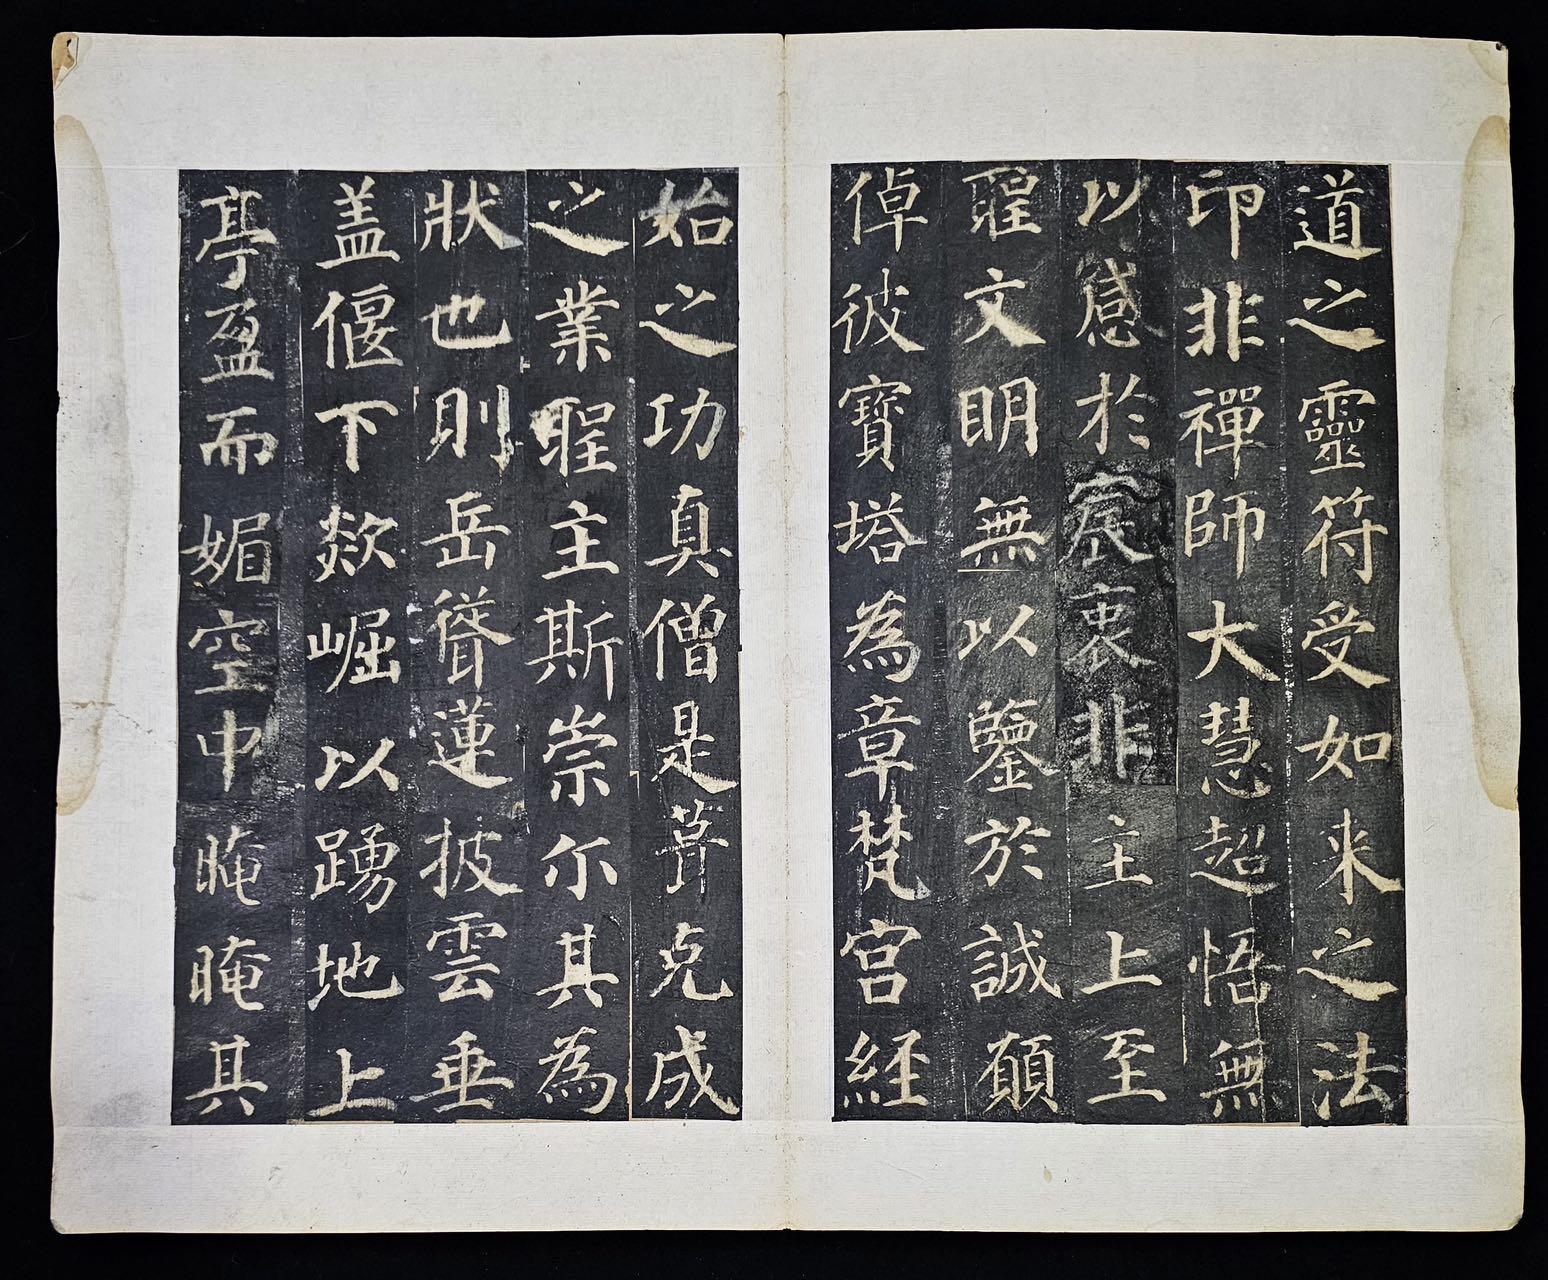 道之靈符受如来之法
印非禪師大慧超悟無
以感於宸衷非主上至
聖文明無以鑒於誠願
倬彼寶塔為章梵宫経
始之功真僧是葺克成
之業聖主斯崇尓其為
狀也則岳聳蓮披雲垂
盖偃下欻崛以踴地上
亭盈而媚空中晻晻其